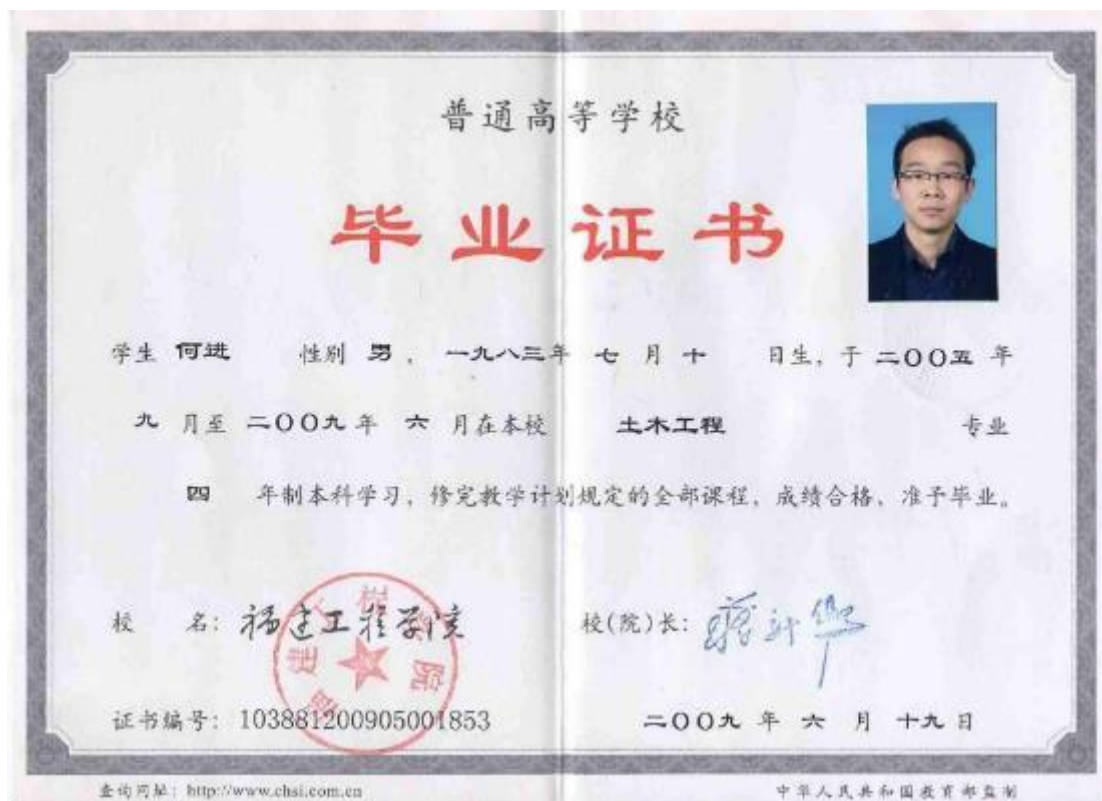 普通高等学校
毕业证书
学生 何进 性别 男，一九八三年 七 月 十 日生，于 二〇〇五 年
九 月至 二〇〇九 年 六 月在本校 土木工程 专业
四 年制本科学习，修完教学计划规定的全部课程，成绩合格、准予毕业。
校 名：福建工程学院 校(院)长：
证书编号：103881200905001853 二〇〇九 年 六 月 十九 日
查询网址：http://www.chsi.com.cn 中华人民共和国教育部监制